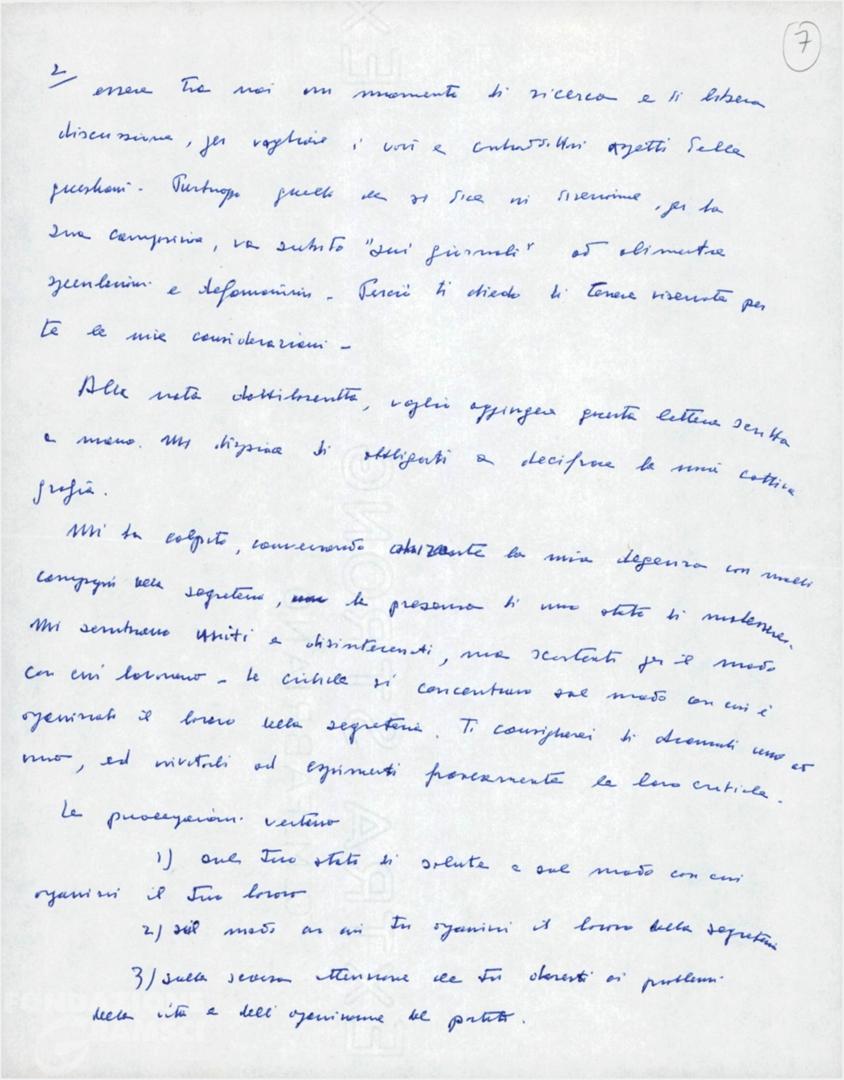 7
2/ essere tra noi un momento di ricerca e di libera
discussione, per vagliare i vari e contraddittori aspetti della
questioni. Purtroppo quello che si dice in direzione, per la
sua composizione, va subito "sui giornali" ad alimentare
speculazioni e deformazioni. Perciò ti chiedo di tenere riservate per
te le mie considerazioni.
Alla nota dattiloscritta, voglio aggiungere questa lettera scritta
a mano. Mi dispiace di obbligarti a decifrare la mia cattiva
grafia.
Mi ha colpito, conversando durante la mia degenza con molti
compagni della segreteria, la presenza di uno stato di malessere.
Mi sembrano uniti e disinteressati, ma scontenti per il modo
con cui lavorano. Le critiche si concentrano sul modo con cui è
organizzato il lavoro della segreteria. Ti consiglierei di chiamarli uno ad
uno, ed invitarli ad esprimerti francamente le loro critiche.
Le preoccupazioni vertono
1) sul Tuo stato di salute e sul modo con cui
organizzi il Tuo lavoro
2) sul modo con cui Tu organizzi il lavoro della segreteria
3) sulla scarsa attenzione che Tu daresti ai problemi
della vita e dell'organizzazione del partito.
FONDAZIONE
GRAMSCI